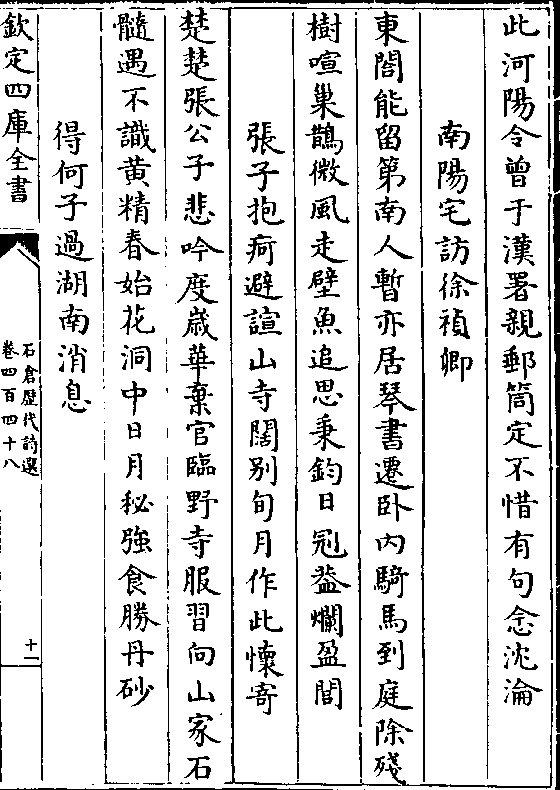 此河陽令曾于漢署親郵筒定不惜有句念沈淪
南陽宅訪徐禎卿
東閤能留第南人暫亦居琴書遷卧内騎馬到庭除殘
樹喧巢鵲微風走壁魚追思秉鈞日冠葢爛盈閭
張子抱疴避諠山寺闊别旬月作此懷寄
楚楚張公子悲吟度嵗華棄官臨野寺服習向山家石
髓遇不識黄精春始花洞中日月秘強食勝丹砂
得何子過湖南消息
欽定四庫全書
石倉歴代詩選
卷四百四十八
十一